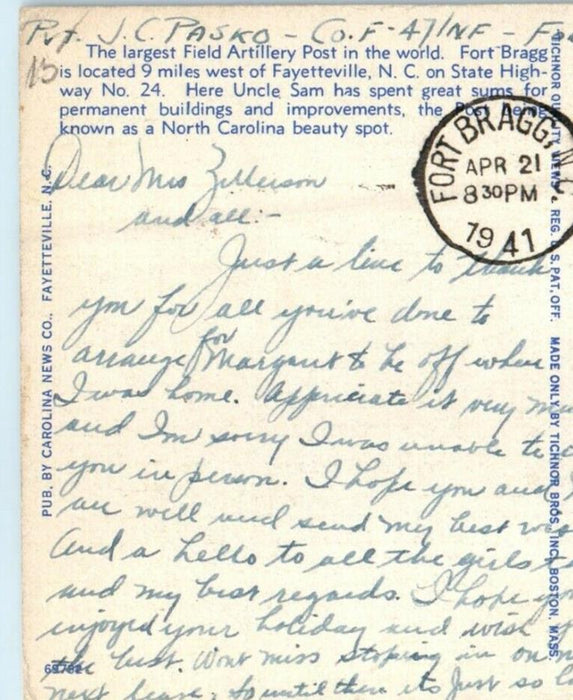 Pvt. J.C. PASKO - Co. F - 47 INF -
The largest Field Artillery Post in the world. Fort Bragg
is located 9 miles west of Fayetteville, N. C. on State High-
way No. 24. Here Uncle Sam has spent great sums for
permanent buildings and improvements, the Post being
known as a North Carolina beauty spot.
FORT BRAGG, N.C.
APR 21
8 30 PM
1941
Dear Mrs
and all:-
Just a line to thank
you for all you've done to
arrange for Margaret to be off when
I was home. Appriciate it very
and I'm sorry I was unable to
you in person. I hope you and
are well and send my best
And a hello to all the girls
and my best regards. I hope you
enjoyed your holiday and wish
the best. Wont miss stoping in on
next leave, so until then it Just so
PUB. BY CAROLINA NEWS CO., FAYETTEVILLE, N.C.
REG. U.S. PAT. OFF. MADE ONLY BY TICHNOR BROS. INC., BOSTON, MASS.